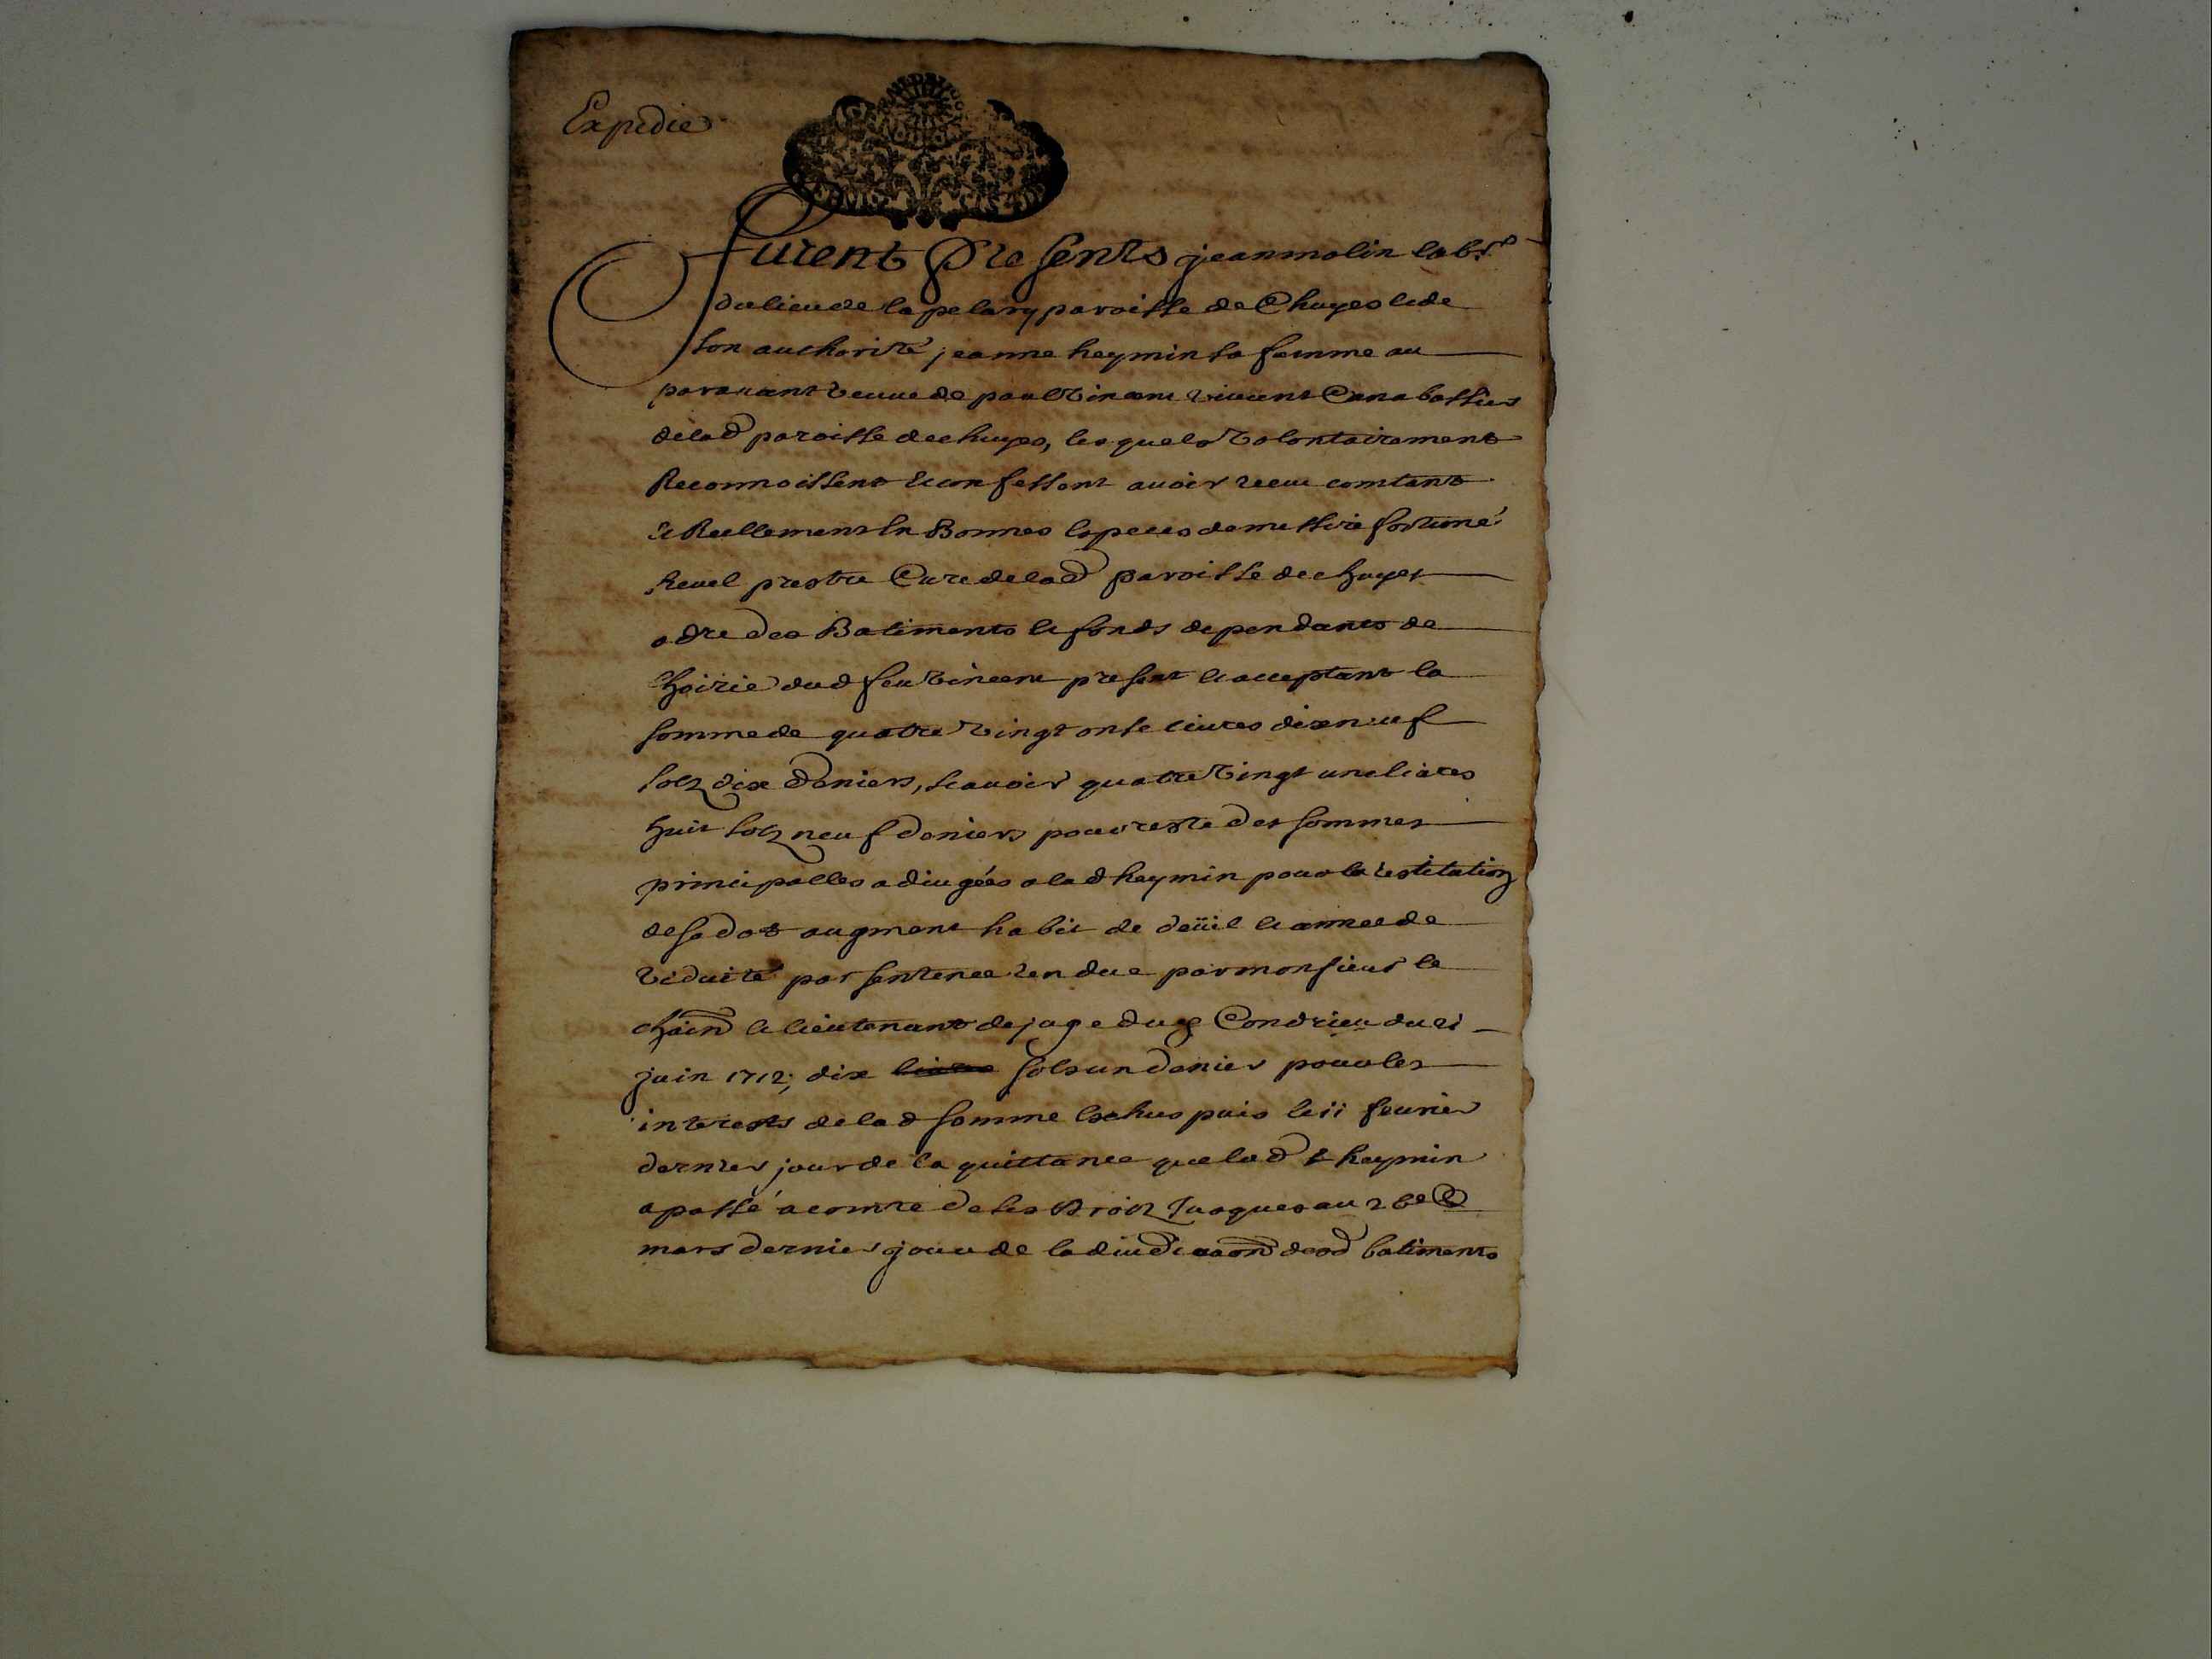 Expedié
Furent Presents jean molin labr
du lieu de la pelany paroisse de Chuyes & de
son authorité jeanne heymin sa femme au
paravant veuve de paul vincent vivant Cana bassier
de lad paroisse de chuyes, lesquels volontairement
Reconnoissent & confessent avoir receu comtant
& Reellement en Bonnes especes de messire fortuné
Revel prestre Curé de lad paroisse de chuyes
adre des Batiments & fonds dependants de
hoirie dud feu vincent present & acceptant la
somme de quatre vingt onse livres dix neuf
solz dix deniers, scavoir quatre vingt une livres
huit solz neuf deniers pour reste des sommes
principalles adiugées a lad heymin pour la restitution
de sa dot augment habit de deüil & annee de
viduité par sentence rendue par monsieur le
chain & lieutenant de juge de Condrieu du 21
juin 1712; dix sols un denier pour les
interests de lad somme echus puis le 11 feurier
dernier jour de la quittance que lad heymin
a passé a comte de ses Droitz Jusques au 26e
mars dernier jour de ladiudicaon desd batiments